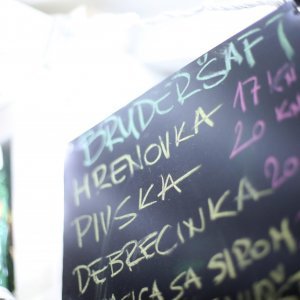 BRUDERŠAFT
HRENOVKA 17 KN
PIVSKA 20 KN
DEBRECINKA 20
SA SIROM